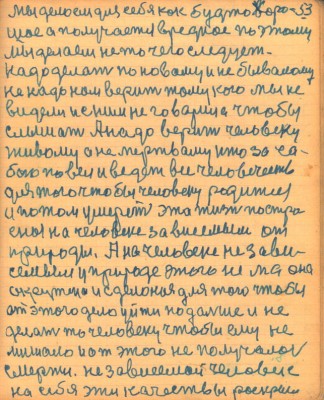 мы делоем для себя кок будто хоро- 53
шое а получается вредное поэтому
мы делаем не то чего следует.
надо делат по новому и не бывалому
не надо нам верит тому кого мы не
видели и с ним не говарили, чтобы
слышат А надо верит человеку
живому а не мертвому кто за са-
бою повел и ведет все человечест
для того чтобы человеку родится
и потом умерет эта жизн постро
ена на человеке зависемым от
природы. А на человеке незави-
семым у природе этого нема она
и сделоная для того чтобы
ат этого дело уйти подалше и не
делат то человеку чтобы ему не
мишало и от этого не получалос
смерти. независемой человек
на себя эти качествы роскрыл